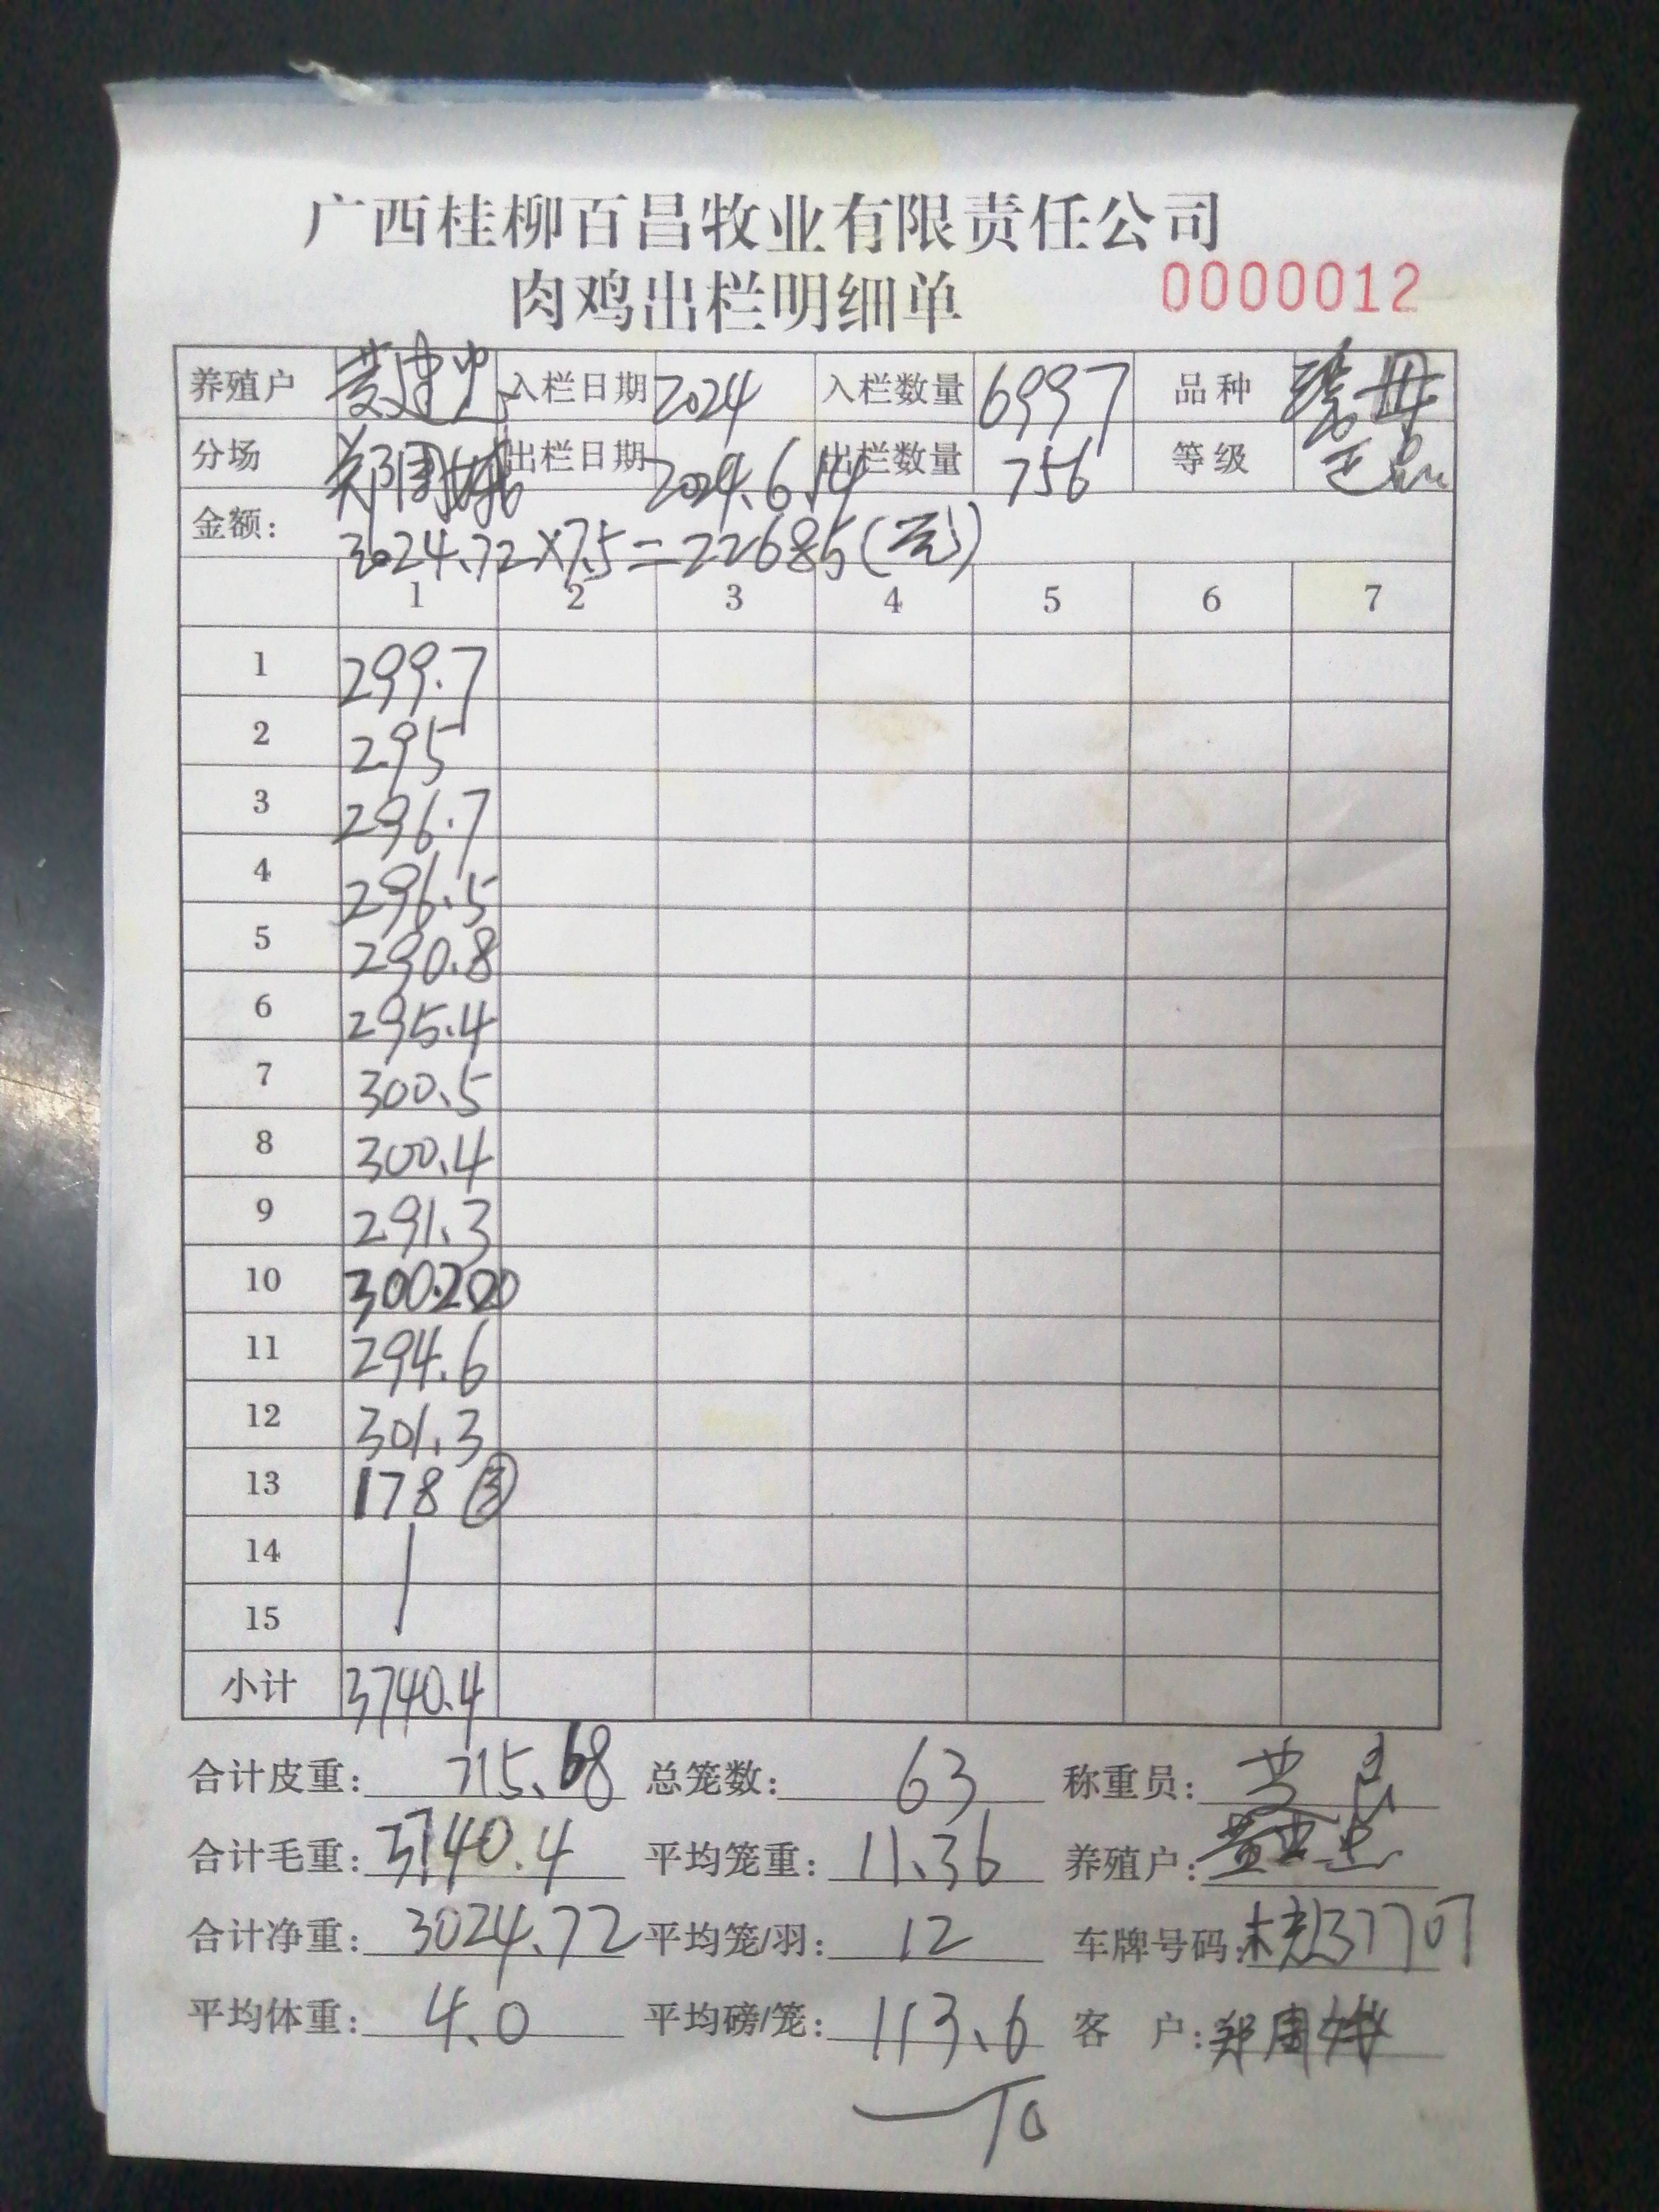 广西桂柳百昌牧业有限责任公司
肉鸡出栏明细单 0000012
养殖户 入栏日期 2024 入栏数量 6997 品种
分场 郑周娥 出栏日期 2024.6.14 出栏数量 756 等级 正品
金额: 3024.72×7.5=22685(元)
1 2 3 4 5 6 7
1 299.7
2 295
3 296.7
4 296.5
5 290.8
6 295.4
7 300.5
8 300.4
9 291.3
10 300.2
11 294.6
12 301.3
13 178 ③
14
15
小计 3740.4
合计皮重: 715.68 总笼数: 63 称重员:
合计毛重: 3740.4 平均笼重: 11.36 养殖户:
合计净重: 3024.72 平均笼/羽: 12 车牌号码: 37707
平均体重: 4.0 平均磅/笼: 113.6 客 户: 郑周娥
10